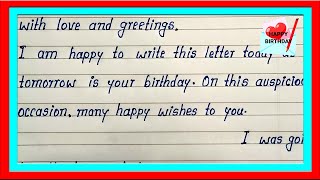 with love and greetings.
HAPPY
BIRTHDAY
I am happy to write this letter today as
tomorrow is your birthday. On this auspicio
occasion, many happy wishes to you.
I was goi